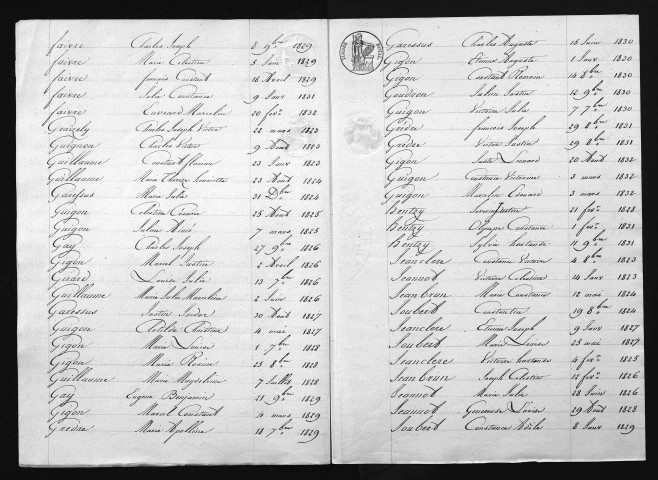 faivre Charles Joseph 8 9bre 1829
faivre Marie Celestine 5 Juin 1829
faivre françois Constant 18 Avril 1829
faivre Julie Constance 9 Janv 1831
faivre Edouard Marcelin 20 fevr 1832
Graizely Charles Joseph Victor 22 mars 1823
Guignon Charles Victor 9 Aout 1823
Guillaume Constant florian 23 Janv 1823
Guillaume Marie Therese henriette 23 Aout 1824
Garessus Marie Julie 31 Dbre 1824
Guigon Celestine Césarie 25 Aout 1825
Guigon Julien Aimé 7 mars 1825
Gay Charles Joseph 27 9bre 1826
Gigon Marcel Justin 2 Avril 1826
Girard Louise Julie 13 7bre 1826
Guillaume Marie Julie Marceline 2 Juin 1826
Garessus Justin Isidor 30 Aout 1827
Guigon Clotilde Christine 4 mai 1827
Gigon Marie Louise 1 7bre 1828
Gigon Marie Rosine 23 8bre 1828
Guillaume Marie Magdeleine 7 Juillet 1828
Gay Eugene Benjamin 21 9bre 1829
Gigon Marcel Constant 4 mars 1829
Grédre Marie Apolline 18 7bre 1829
Garessus Charles Auguste 16 Juin 1830
Gigon Etienne Auguste 1 Janv 1830
Gigon Constant 14 8bre 1830
Goudron Julien Justin 12 9bre 1830
Guigon Victoire Julie 7 7bre 1830
Grédre françois Joseph 29 8bre 1831
Grédre Victor Justin 29 8bre 1831
Gigon Juste Leonard 20 Aout 1832
Guigon Constance Victorine 3 mars 1832
Guigon Marcelin Edouard 3 mars 1832
Hentzy Justin 21 fevr 1828
Hentzy Olympe Constance 1 fevr 1831
Hentzy Sylvie hortense 11 9bre 1831
Jeanclerc Constance Victoire 4 8bre 1823
Jeannot Victoire Celestine 14 Janv 1823
Jeanbrun Marie Constance 12 mai 1824
Joubert Constantin 19 8bre 1824
Jeanclerc Etienne Joseph 9 Janv 1827
Joubert Marie Louise 25 mai 1827
Jeanclerc Victoire hortense 4 fevr 1825
Jeanbrun Joseph Celestin 12 fevr 1826
Jeannot Marie Julie 28 Juin 1826
Jeannot Généreuse Louise 29 Aout 1828
Joubert Constance Adèle 8 Janv 1829